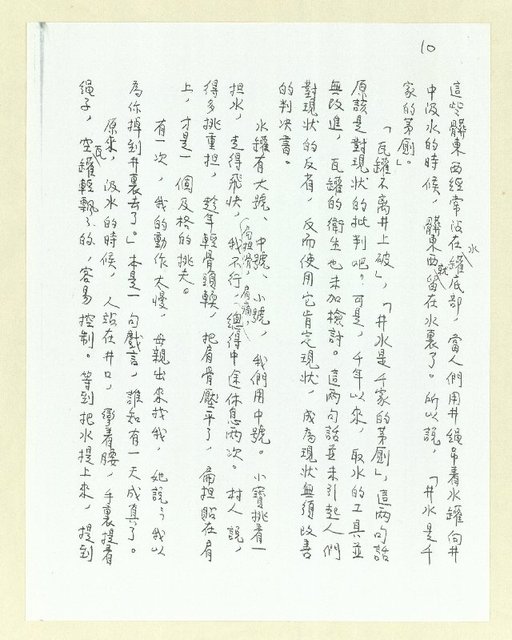 10
這些髒東西經常沒在水罐底部，當人們用井繩吊着水罐向井
中汲水的時候，髒東西就留在水裏了。所以說，「井水是千
家的茅廁」。
「瓦罐不離井上破」，「井水是千家的茅廁」，這兩句話
原該是對現狀的批判吧。可是，千年以來，取水的工具並
無改進，瓦罐的衛生也未加檢討。這兩句話並未引起人們
對現狀的反省，反而使用它肯定現狀，成為現狀無須改善
的判決書。
水罐有大號、中號、小號，我們用中號。小寶挑着一
担水，走得飛快，我不行，肩担骨，肩痛，總得中途休息兩次。村人說，
得多挑重担，趁年輕骨頭軟，把肩骨壓平了，扁担貼在肩
上，才是一個及格的挑夫。
有一次，我的動作太慢，母親出來找我，她說：我以
為你掉到井裏去了。」本是一句戲言，誰知有一天成真了。
原來，汲水的時候，人站在井口，彎着腰，手裏提着
繩子，空瓦罐輕飄飄的，容易控制。等到把水提上來，提到